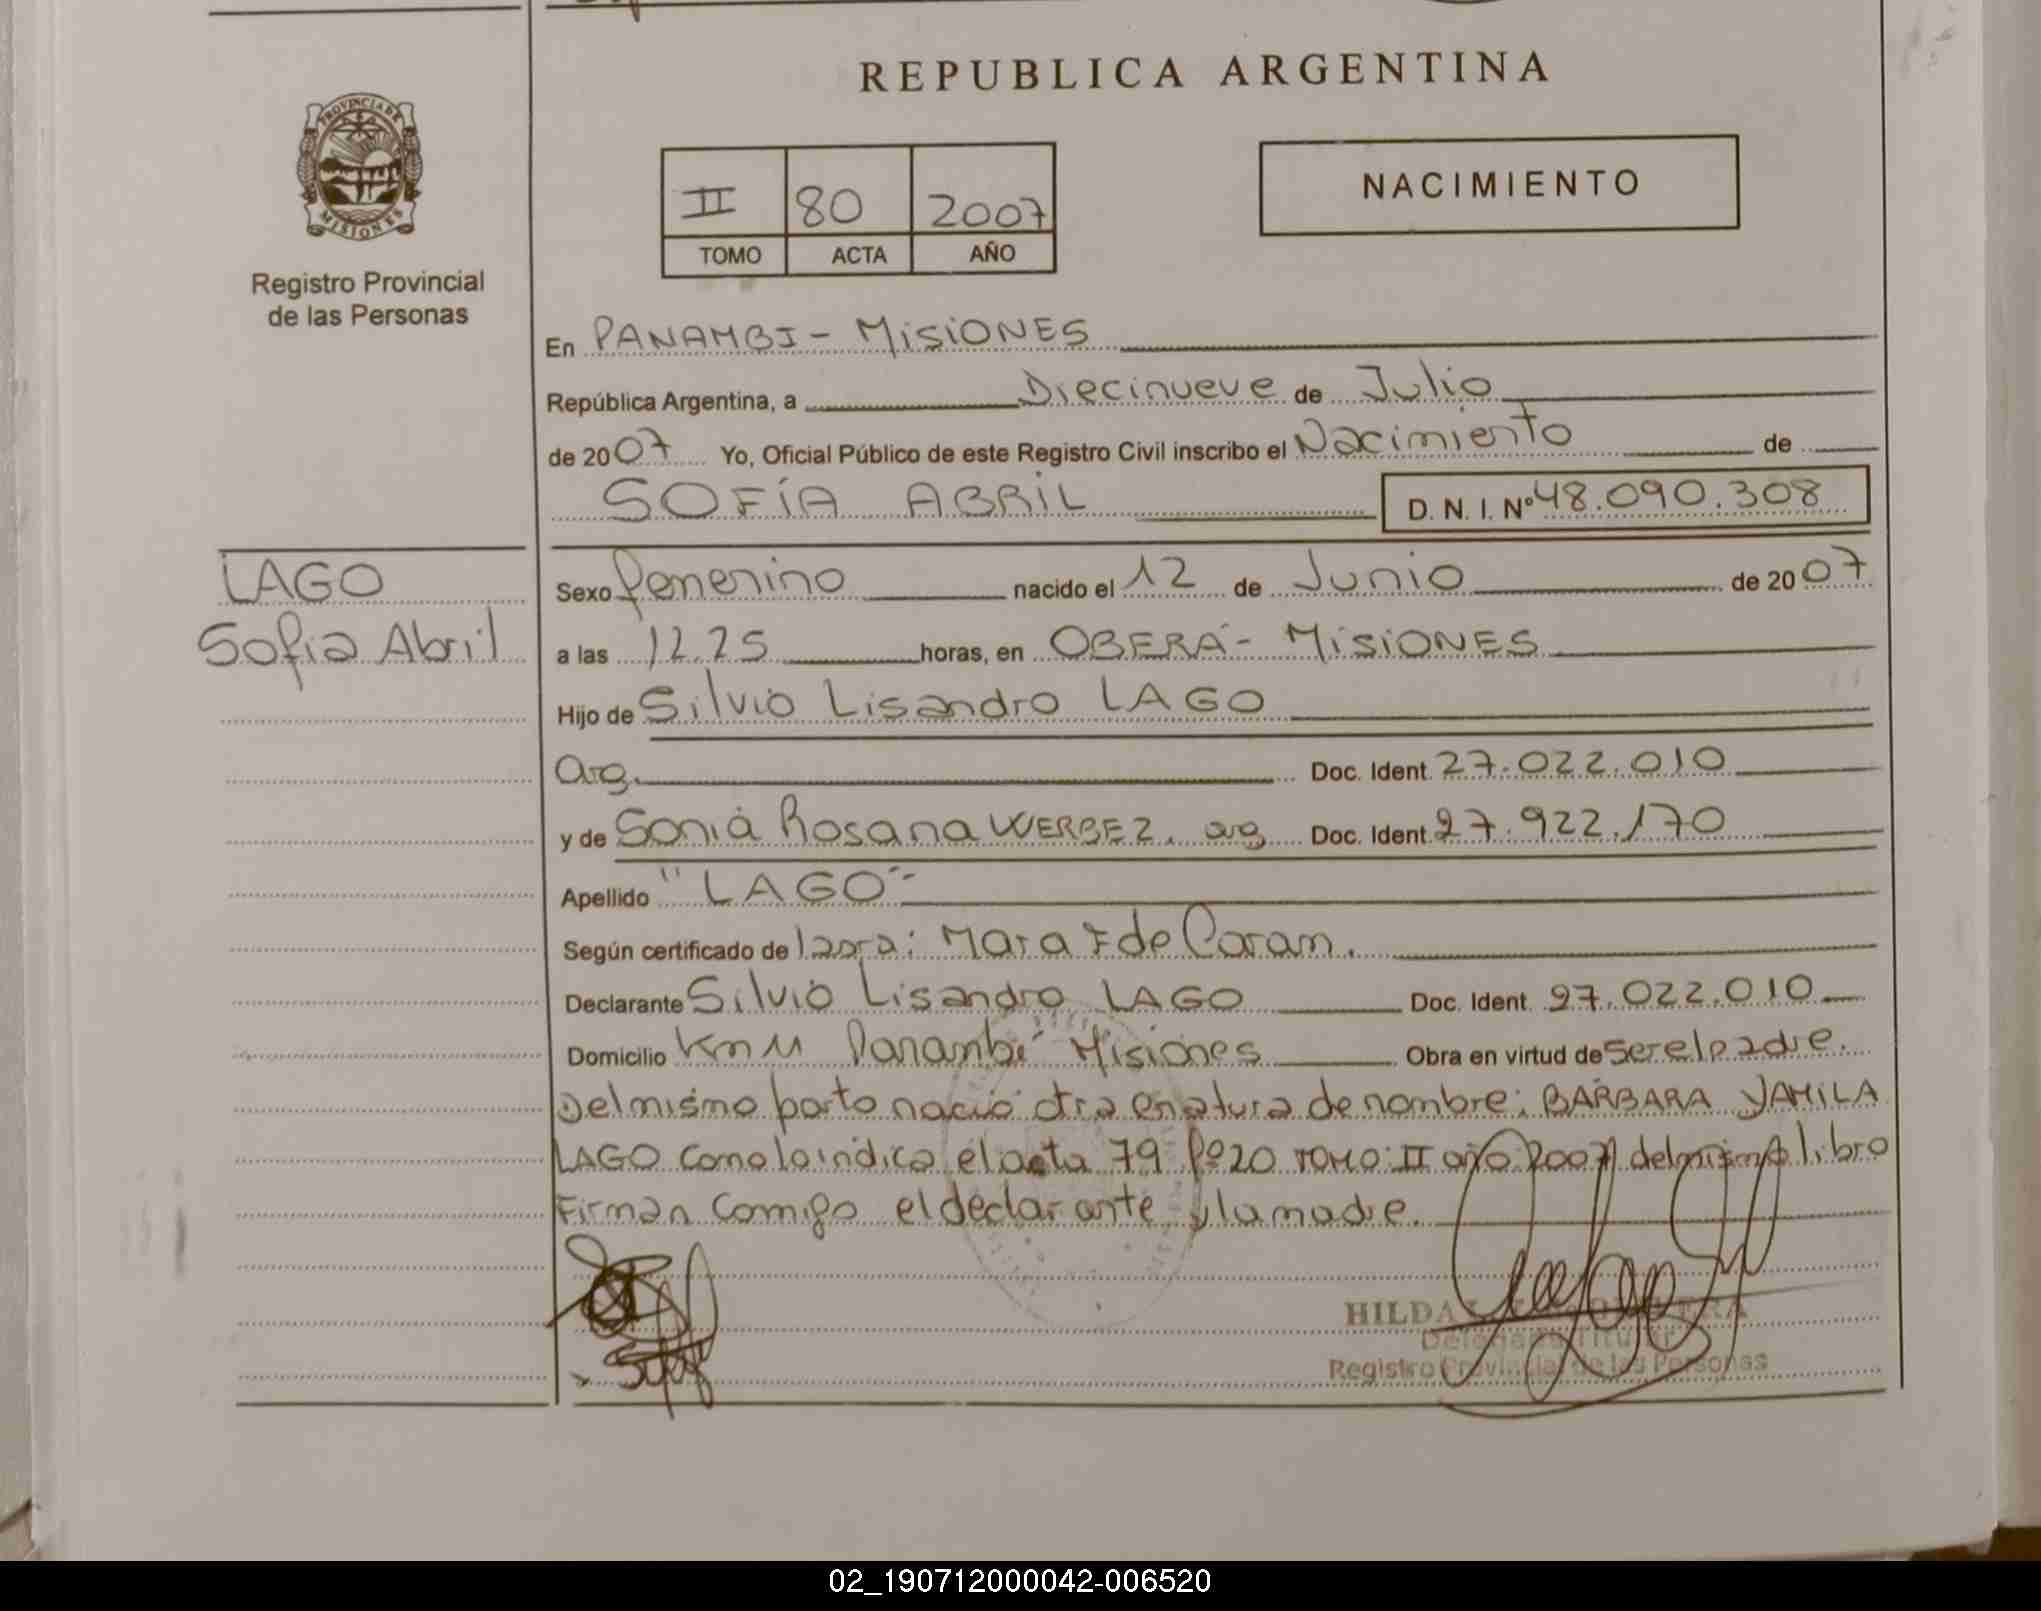 REPUBLICA ARGENTINA
PROVINCIA DE
MISIONES
Registro Provincial
de las Personas
II 80 2007
TOMO ACTA AÑO
NACIMIENTO
En PANAMBI - MISIONES
República Argentina, a Diecinueve de Julio
de 2007 Yo, Oficial Público de este Registro Civil inscribo el Nacimiento de
SOFÍA ABRIL D. N. I. Nº 48.090.308
LAGO
Sofia Abril
Sexo femenino nacido el 12 de Junio de 2007
a las 12.25 horas, en OBERÁ - MISIONES
Hijo de Silvio Lisandro LAGO
arg. Doc. Ident. 27.022.010
y de Sonia Rosana WERBEZ. arg Doc. Ident. 27.922.170
Apellido "LAGO"
Según certificado de Mara F de Caram.
Declarante Silvio Lisandro LAGO Doc. Ident. 27.022.010
Domicilio Km 11 Panambí Misiones Obra en virtud de ser el padre.
Del mismo parto nació otra criatura de nombre: BÁRBARA YAMILA
LAGO como lo indica el acta 79 Fº 20 TOMO: II año 2007 del mismo libro
Firman conmigo el declarante y la madre.
HILDA
Delegada Titular
Registro Provincial de las Personas
02_190712000042-006520